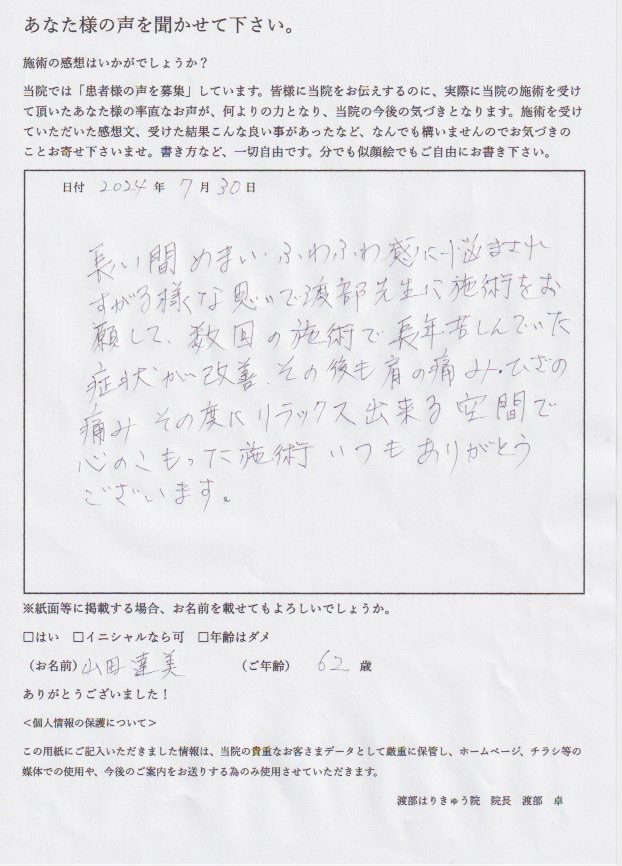 あなた様の声を聞かせて下さい。
施術の感想はいかがでしょうか？
当院では「患者様の声を募集」しています。皆様に当院をお伝えするのに、実際に当院の施術を受け
て頂いたあなた様の率直なお声が、何よりの力となり、当院の今後の気づきとなります。施術を受け
ていただいた感想文、受けた結果こんな良い事があったなど、なんでも構いませんのでお気づきの
ことお寄せ下さいませ。書き方など、一切自由です。分でも似顔絵でもご自由にお書き下さい。
日付 2024 年 7 月 30 日
長い間 めまい・ふわふわ感に悩まされ
すがる様な思いで渡部先生に施術をお
願して、数回の施術で長年苦しんでいた
症状が改善、その後も肩の痛み・ひざの
痛み その度にリラックス出来る空間で
心のこもった施術 いつもありがとう
ございます。
※紙面等に掲載する場合、お名前を載せてもよろしいでしょうか。
□はい □イニシャルなら可 □年齢はダメ
（お名前）山田達美 （ご年齢） 62 歳
ありがとうございました！
<個人情報の保護について>
この用紙にご記入いただきました情報は、当院の貴重なお客さまデータとして厳重に保管し、ホームページ、チラシ等の
媒体での使用や、今後のご案内をお送りする為のみ使用させていただきます。
渡部はりきゅう院 院長 渡部 卓